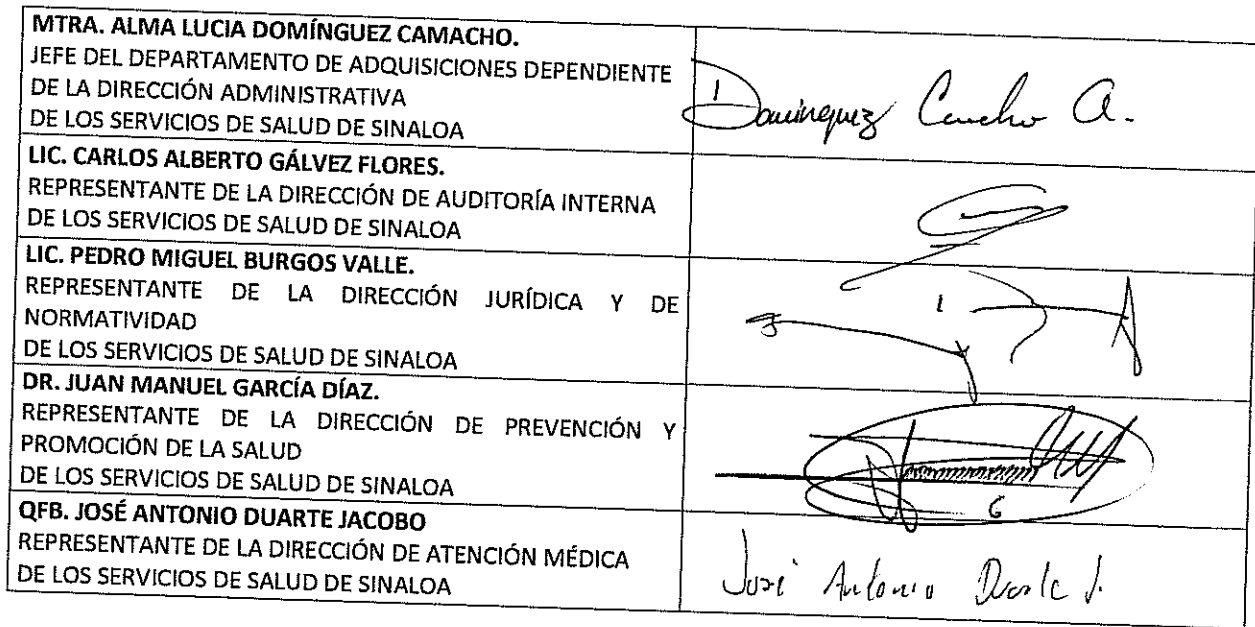 MTRA. ALMA LUCIA DOMÍNGUEZ CAMACHO.
JEFE DEL DEPARTAMENTO DE ADQUISICIONES DEPENDIENTE
DE LA DIRECCIÓN ADMINISTRATIVA
DE LOS SERVICIOS DE SALUD DE SINALOA
Domínguez Camacho A.
LIC. CARLOS ALBERTO GÁLVEZ FLORES.
REPRESENTANTE DE LA DIRECCIÓN DE AUDITORÍA INTERNA
DE LOS SERVICIOS DE SALUD DE SINALOA
LIC. PEDRO MIGUEL BURGOS VALLE.
REPRESENTANTE DE LA DIRECCIÓN JURÍDICA Y DE
NORMATIVIDAD
DE LOS SERVICIOS DE SALUD DE SINALOA
DR. JUAN MANUEL GARCÍA DÍAZ.
REPRESENTANTE DE LA DIRECCIÓN DE PREVENCIÓN Y
PROMOCIÓN DE LA SALUD
DE LOS SERVICIOS DE SALUD DE SINALOA
QFB. JOSÉ ANTONIO DUARTE JACOBO
REPRESENTANTE DE LA DIRECCIÓN DE ATENCIÓN MÉDICA
DE LOS SERVICIOS DE SALUD DE SINALOA
José Antonio Duarte J.